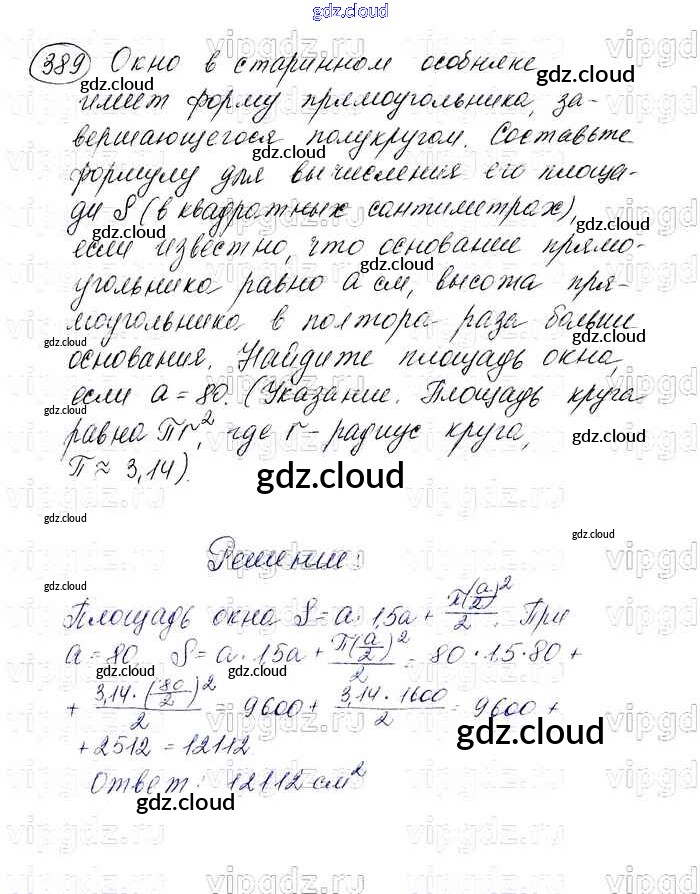 gdz.cloud
389 Окно в старинном особняке
имеет форму прямоугольника, за-
вершающегося полукругом. Составьте
формулу для вычисления его площа-
ди S (в квадратных сантиметрах),
если известно, что основание прямо-
угольника равно a см, высота пря-
моугольника в полтора раза больше
основания. Найдите площадь окна,
если a = 80. (Указание. Площадь круга
равна πr², где r - радиус круга,
π ≈ 3,14).
gdz.cloud
Решение:
Площадь окна S = a · 1,5a + π(a/2)²/2. При
a = 80 S = a · 1,5a + π(a/2)²/2 = 80 · 1.5 · 80 +
+ 3,14 · (80/2)²/2 = 9600 + 3,14 · 1600/2 = 9600 +
+ 2512 = 12112
Ответ: 12112 см²
gdz.cloud